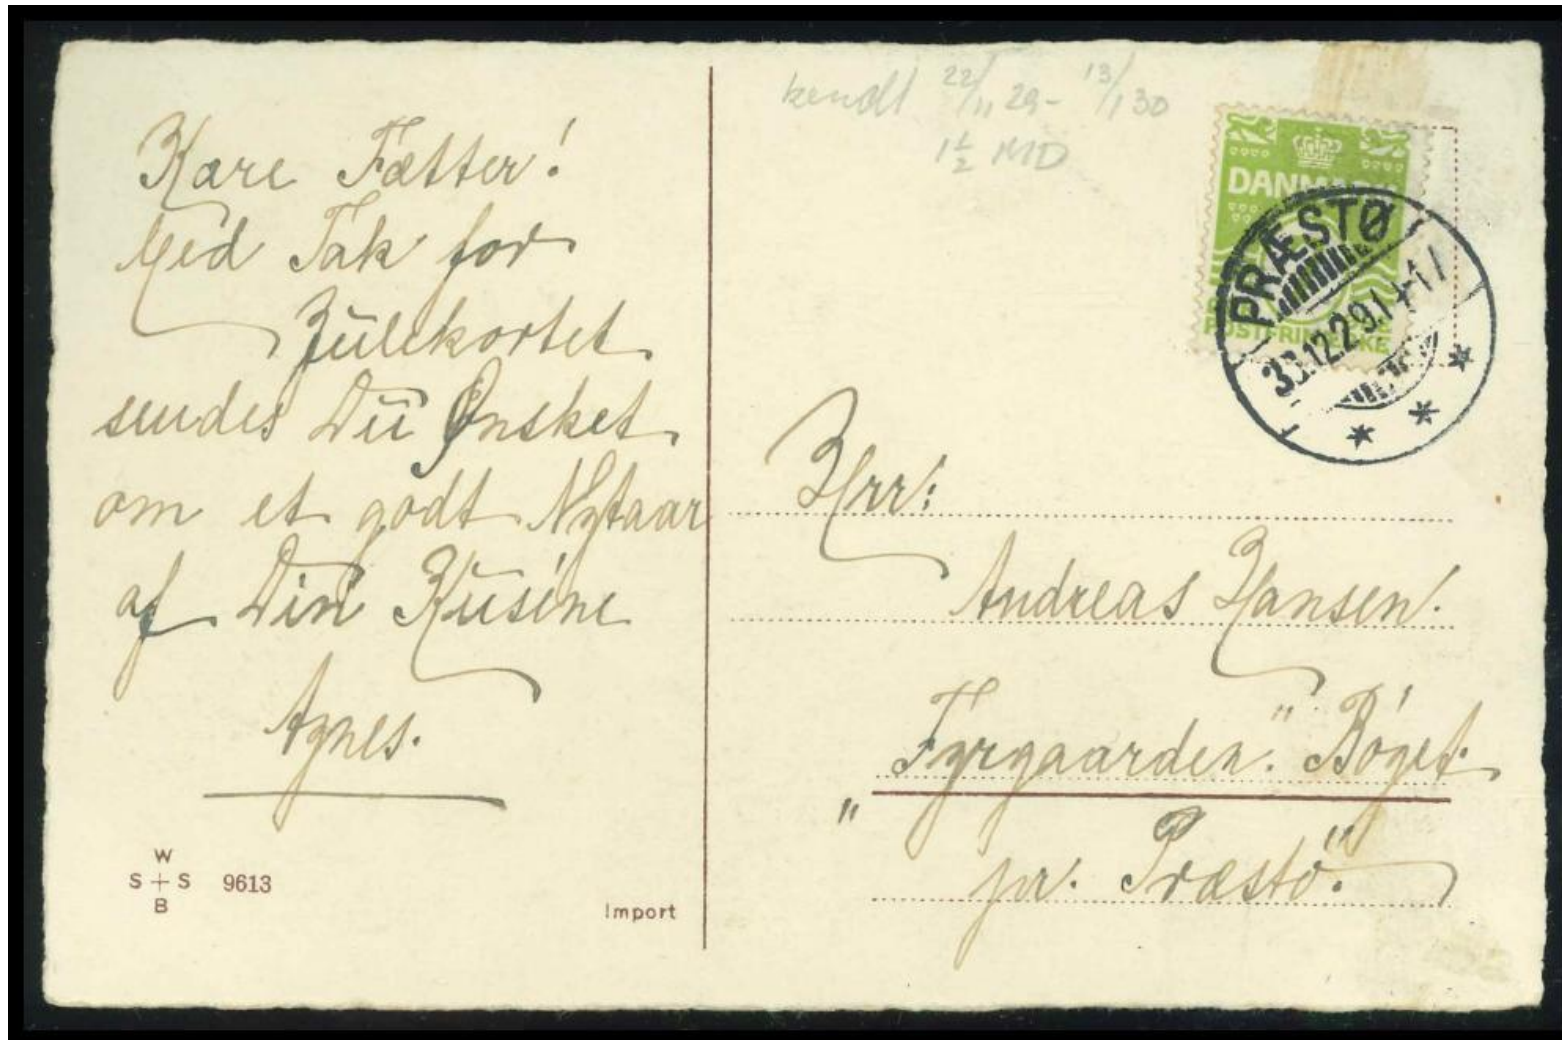 Kære Fætter!
Med Tak for
Julekortet
sendes Du Ønsket
om et godt Nytaar
af Din Kusine
Agnes.
W
S + S 9613
B
Import
kendt 22/11 29- 13/1 30
1 1/2 MD
DANMARK
POSTFRIMÆRKE
PRÆSTØ
12.29.
Hrr:
Andreas Hansen.
"Fyrgaarden." Bøget.
pr. Præstø.